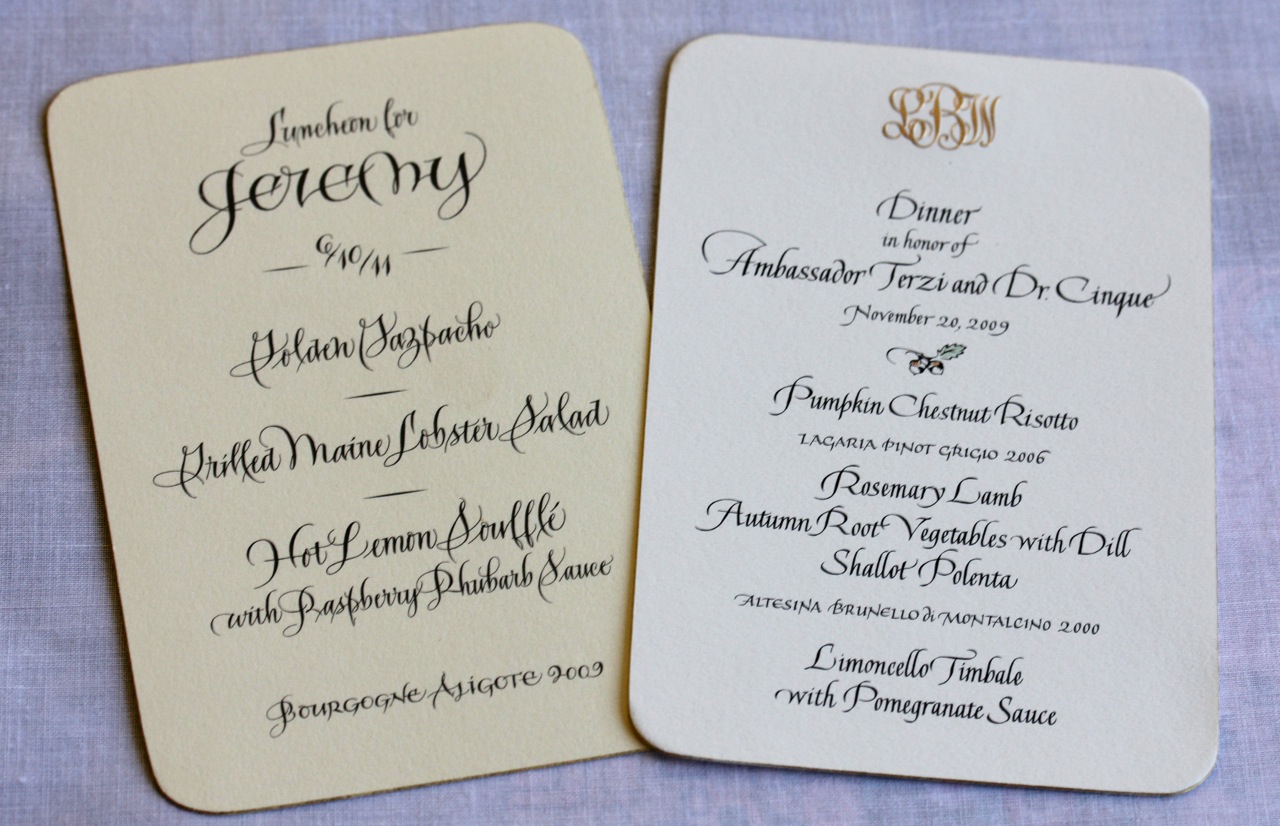 Luncheon for
Jeremy
6/10/11
Golden Gazpacho
Grilled Maine Lobster Salad
Hot Lemon Soufflé
with Raspberry Rhubarb Sauce
Bourgogne Aligote 2009
LBW
Dinner
in honor of
Ambassador Terzi and Dr. Cinque
November 20, 2009
Pumpkin Chestnut Risotto
LAGARIA PINOT GRIGIO 2006
Rosemary Lamb
Autumn Root Vegetables with Dill
Shallot Polenta
ALTESINA BRUNELLO di MONTALCINO 2000
Limoncello Timbale
with Pomegranate Sauce